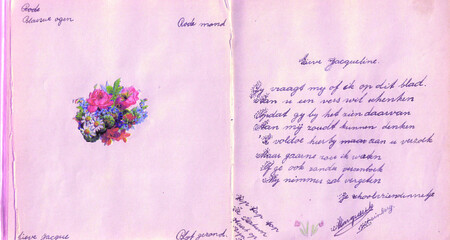 Rode
Blauwe ogen
Rode mond
Lieve Jacque
Blijf gezond.
Lieve Jacqueline.
Gy vraagt my of ik op dit blad.
Aan u een vers wil schenken
Opdat gy by het zien daarvan
Aan mij zoudt kunnen denken
'K voldoe hierby maar aan u verzoek
Maar gaarne zou ik weten
Of ge ook zonder
My nimmer zal vergeten
Je schoolvriendinnetje